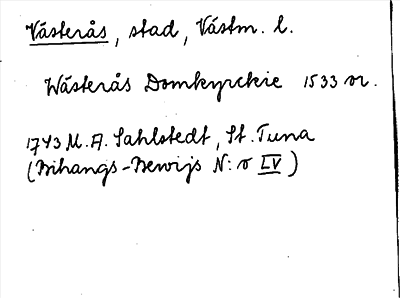 Västerås, stad, Västm. l.
Wästerås Domkyrckie 1533 or.
1743 M. A. Sahlstedt, St. Tuna
(Bihangs-Bewijs N:o LV)